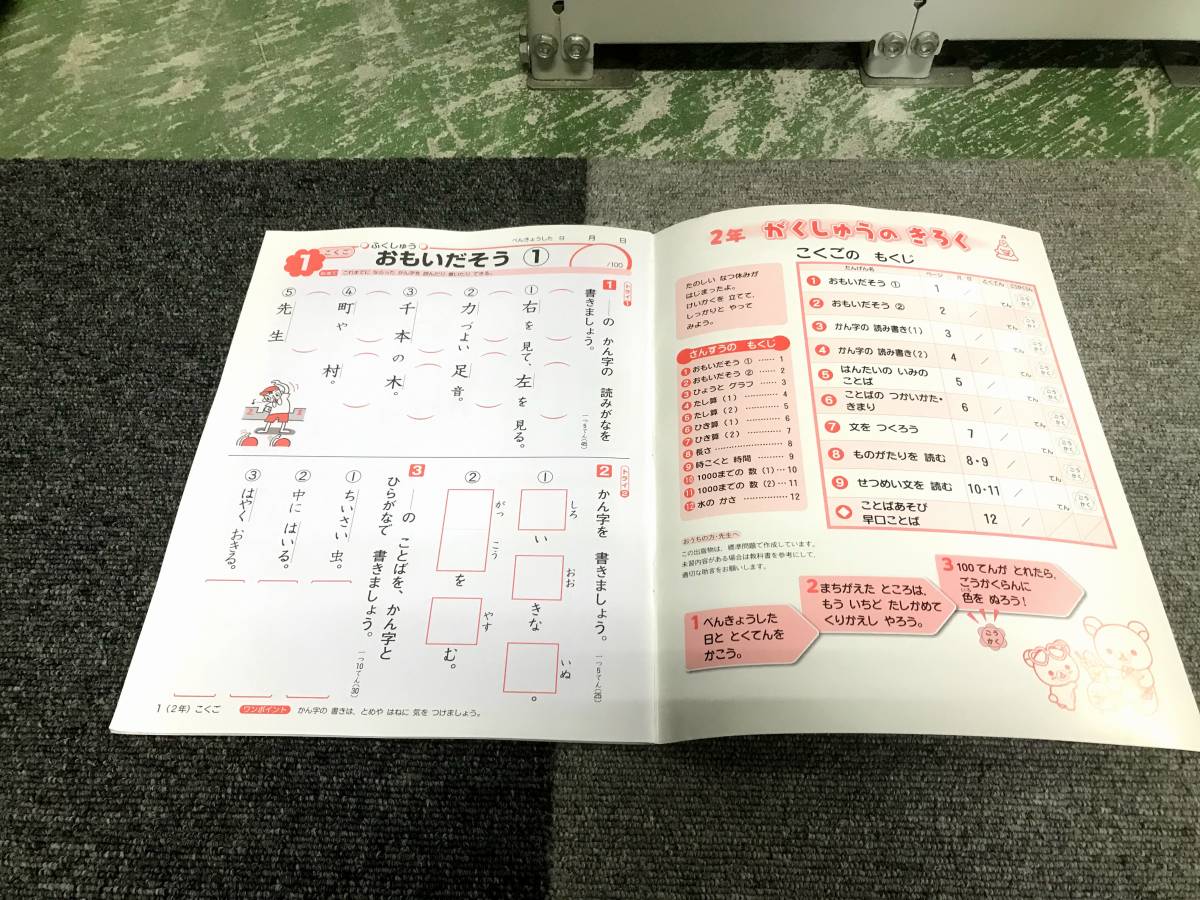 1
こくご
ふくしゅう
おもいだそう ①
べんきょうした 日 月 日
/100
めあて これまでに ならった かん字を 読んだり 書いたり できる。
トライ1
1 ――の かん字の 読みがなを
書きましょう。
一つ5てん(45)
① 右を 見て、左を 見る。
② 力づよい 足音。
③ 千本の 木。
④ 町や 村。
⑤ 先生
トライ2
2 かん字を 書きましょう。
一つ5てん(25)
① しろい おおきな いぬ。
② がっこうを やすむ。
3 ――の ことばを、かん字と
ひらがなで 書きましょう。
一つ10てん(30)
① ちいさい 虫。
② 中に はいる。
③ はやく おきる。
1(2年)こくご
ワンポイント かん字の 書きは、とめや はねに 気を つけましょう。
2年 がくしゅうの きろく
たのしい なつ休みが
はじまったよ。
けいかくを 立てて、
しっかりと やって
みよう。
さんすうの もくじ
1 おもいだそう ① …… 1
2 おもいだそう ② …… 2
3 ひょうと グラフ …… 3
4 たし算(1) ………… 4
5 たし算(2) ………… 5
6 ひき算(1) ………… 6
7 ひき算(2) ………… 7
8 長さ ………… 8
9 時こくと 時間 ……… 9
10 1000までの 数(1)… 10
11 1000までの 数(2)… 11
12 水の かさ ………… 12
こくごの もくじ
たんげん名 ページ 月 日 とくてん ごうかくらん
1 おもいだそう ① 1 / てん ごうかく
2 おもいだそう ② 2 / てん ごうかく
3 かん字の 読み書き(1) 3 / てん ごうかく
4 かん字の 読み書き(2) 4 / てん ごうかく
5 はんたいの いみの
ことば 5 / てん ごうかく
6 ことばの つかいかた・
きまり 6 / てん ごうかく
7 文を つくろう 7 / てん ごうかく
8 ものがたりを 読む 8・9 / てん ごうかく
9 せつめい文を 読む 10・11 / てん ごうかく
◆ ことばあそび
早口ことば 12 /
おうちの方・先生へ
この出版物は、標準問題で作成しています。
未習内容がある場合は教科書を参考にして、
適切な助言をお願いします。
1 べんきょうした
日と とくてんを
かこう。
2 まちがえた ところは、
もう いちど たしかめて
くりかえし やろう。
3 100てんが とれたら、
ごうかくらんに
色を ぬろう!
いろ
ごうかく